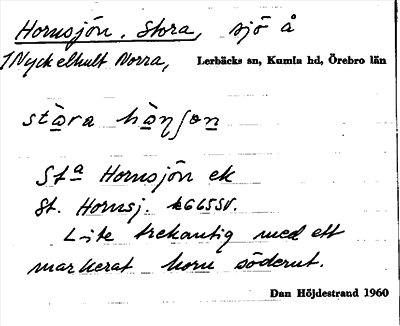 Hornsjön, Stora, sjö å
1 Nyckelhult Norra, Lerbäcks sn, Kumla hd, Örebro län
stàra hànʃɵn
St<sup>a</sup> Hornsjön ek
St. Hornsj. k G65SV.
Lite trekantig med ett
markerat horn söderut.
Dan Höjdestrand 1960